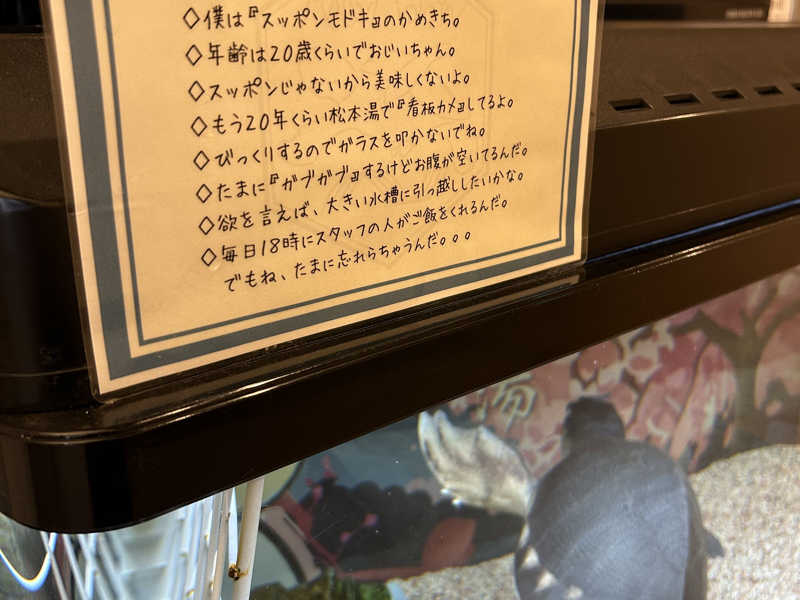 ◇僕は『スッポンモドキ』のかめきち。
◇年齢は20歳くらいでおじいちゃん。
◇スッポンじゃないから美味しくないよ。
◇もう20年くらい松本湯で『看板カメ』してるよ。
◇びっくりするのでガラスを叩かないでね。
◇たまに『ガブガブ』するけどお腹が空いてるんだ。
◇欲を言えば、大きい水槽に引っ越ししたいかな。
◇毎日18時にスタッフの人がご飯をくれるんだ。
でもね、たまに忘れらちゃうんだ。。。
湯